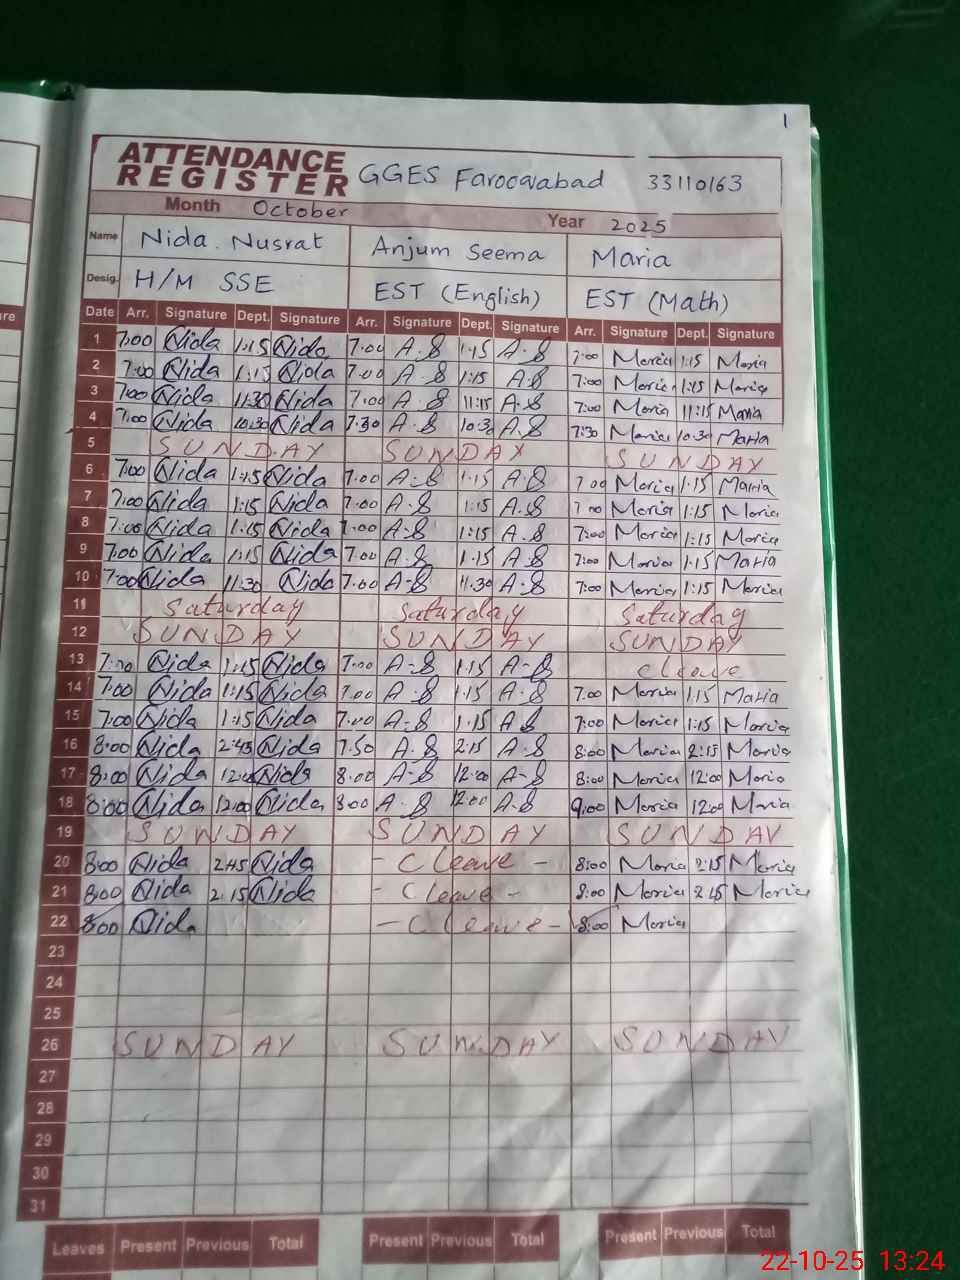 1
ATTENDANCE
REGISTER GGES Farooqabad 33110163
Month October Year 2025
Name Nida Nusrat Anjum Seema Maria
Desig. H/M SSE EST (English) EST (Math)
Date Arr. Signature Dept. Signature Arr. Signature Dept. Signature Arr. Signature Dept. Signature
1 7:00 Nida 1:15 Nida 7.00 A.S 1.15 A.S 7:00 Maria 1:15 Maria
2 7:00 Nida 1:15 Nida 7.00 A.S 1:15 A.S 7:00 Maria 1:15 Maria
3 7:00 Nida 11:30 Nida 7.00 A.S 11:15 A.S 7:00 Maria 11:15 Maria
4 7:00 Nida 10:30 Nida 7.30 A.S 10.30 A.S 7:30 Maria 10.30 Maria
5 SUNDAY SUNDAY SUNDAY
6 7:00 Nida 1:15 Nida 7.00 A-S 1.15 A.S 7 00 Maria 1.15 Maria
7 7:00 Nida 1:15 Nida 7.00 A.S 1:15 A.S Maria 1:15 Maria
8 7:00 Nida 1:15 Nida 7.00 A-S 1:15 A.S 7:00 Maria 1:15 Maria
9 7:00 Nida 1:15 Nida 7.00 A-S 1.15 A.S 7:00 Maria 1.15 Maria
10 7:00 Nida 11:30 Nida 7.00 A-S 11.30 A-S 7:00 Maria 1:15 Maria
11 Saturday Saturday Saturday
12 SUNDAY SUNDAY SUNDAY
13 7:00 Nida 1:15 Nida 7.00 A-S 1.15 A-S C leave
14 7:00 Nida 1:15 Nida 7.00 A.S 1.15 A.S 7:00 Maria 1.15 Maria
15 7:00 Nida 1:15 Nida 7.00 A-S 1.15 A.S 7:00 Maria 1:15 Maria
16 8:00 Nida 2:45 Nida 7.50 A.S 2.15 A.S 8:00 Maria 2:15 Maria
17 8:00 Nida 12:00 Nida 8.00 A-S 12.00 A-S 8:00 Maria 12:00 Maria
18 8:00 Nida 12:00 Nida 8.00 A.S 12.00 A-S 9:00 Maria 12:00 Maria
19 SUNDAY SUNDAY SUNDAY
20 8:00 Nida 2:45 Nida - C leave - 8:00 Maria 2:15 Maria
21 8:00 Nida 2.15 Nida - C leave - 8:00 Maria 2:15 Maria
22 8:00 Nida - C leave - 8:00 Maria
23
24
25
26 SUNDAY SUNDAY SUNDAY
27
28
29
30
31
Leaves Present Previous Total Present Previous Total Present Previous Total
22-10-25 13:24